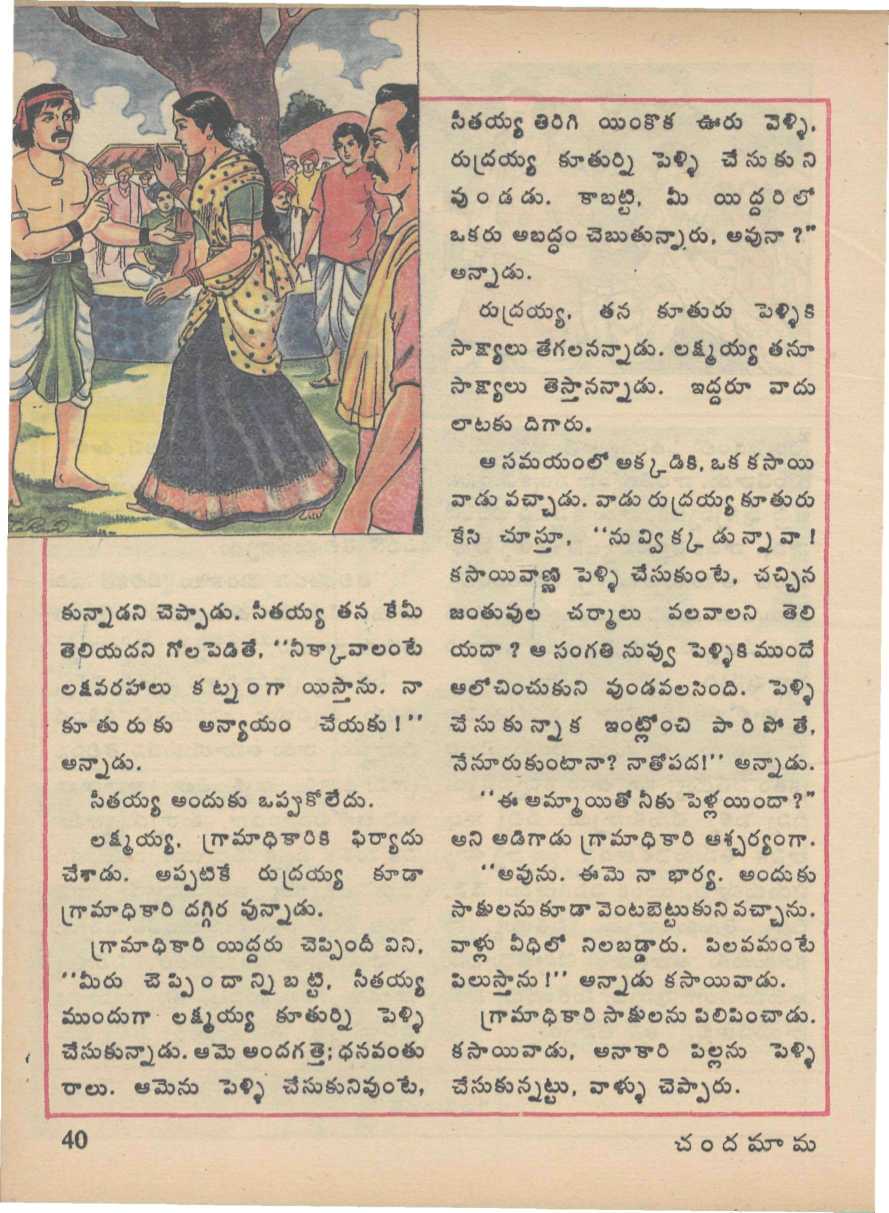 కున్నాడని చెప్పాడు. సీతయ్య తన కేమీ
తెలియదని గోలపెడితే, ‘‘నీక్కావాలంటే
లక్షవరహాలు కట్నంగా యిస్తాను. నా
కూతురుకు అన్యాయం చేయకు!’’
అన్నాడు.
సీతయ్య అందుకు ఒప్పుకోలేదు.
లక్ష్మయ్య, గ్రామాధికారికి ఫిర్యాదు
చేశాడు. అప్పటికే రుద్రయ్య కూడా
గ్రామాధికారి దగ్గిర వున్నాడు.
గ్రామాధికారి యిద్దరు చెప్పిందీ విని,
‘‘మీరు చెప్పిందాన్నిబట్టి, సీతయ్య
ముందుగా లక్ష్మయ్య కూతుర్ని పెళ్ళి
చేసుకున్నాడు. ఆమె అందగత్తె; ధనవంతు
రాలు. ఆమెను పెళ్ళి చేసుకునివుంటే,
సీతయ్య తిరిగి యింకొక ఊరు వెళ్ళి,
రుద్రయ్య కూతుర్ని పెళ్ళి చేసుకుని
వుండడు. కాబట్టి, మీ యిద్దరిలో
ఒకరు అబద్ధం చెబుతున్నారు, అవునా?’’
అన్నాడు.
రుద్రయ్య, తన కూతురు పెళ్ళికి
సాక్ష్యాలు తేగలనన్నాడు. లక్ష్మయ్య తనూ
సాక్ష్యాలు తెస్తానన్నాడు. ఇద్దరూ వాదు
లాటకు దిగారు.
ఆ సమయంలో అక్కడికి, ఒక కసాయి
వాడు వచ్చాడు. వాడు రుద్రయ్య కూతురు
కేసి చూస్తూ, ‘‘నువ్విక్కడున్నావా!
కసాయివాణ్ణి పెళ్ళి చేసుకుంటే, చచ్చిన
జంతువుల చర్మాలు వలవాలని తెలి
యదా? ఆ సంగతి నువ్వు పెళ్ళికి ముందే
ఆలోచించుకుని వుండవలసింది. పెళ్ళి
చేసుకున్నాక ఇంట్లోంచి పారిపోతే,
నేనూరుకుంటానా? నాతోపద!’’ అన్నాడు.
‘‘ఈ అమ్మాయితో నీకు పెళ్లయిందా?’’
అని అడిగాడు గ్రామాధికారి ఆశ్చర్యంగా.
‘‘అవును. ఈమె నా భార్య. అందుకు
సాక్షులను కూడా వెంటబెట్టుకుని వచ్చాను.
వాళ్లు వీధిలో నిలబడ్డారు. పిలవమంటే
పిలుస్తాను!’’ అన్నాడు కసాయివాడు.
గ్రామాధికారి సాక్షులను పిలిపించాడు.
కసాయివాడు, అనాకారి పిల్లను పెళ్ళి
చేసుకున్నట్టు, వాళ్ళు చెప్పారు.
40
చందమామ